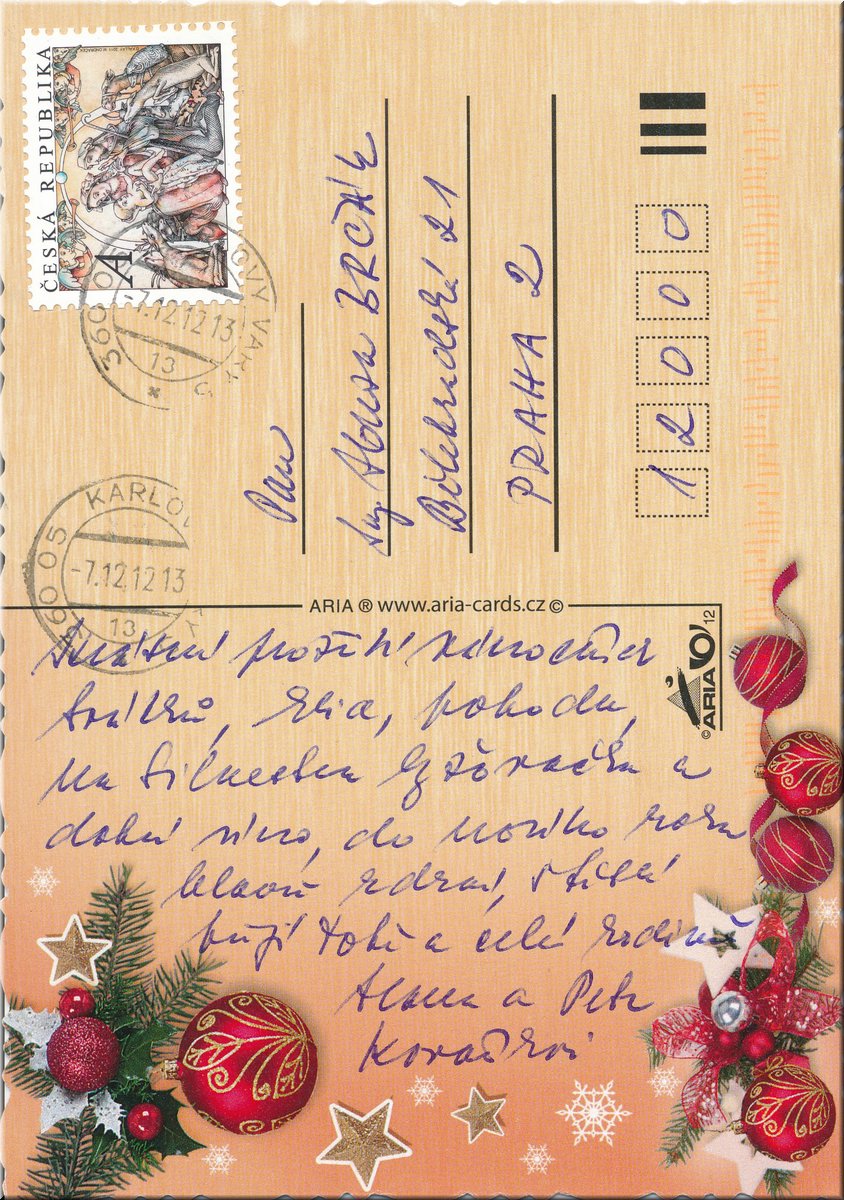 ČESKÁ REPUBLIKA
A
360 05 KARLOVY VARY 5
-7.12.12 13
13
360 05 KARLOV
-7.12.12 13
13
Pan
Ing.
BRČÁK
Bělehradská 21
PRAHA 2
12000
ARIA ® www.aria-cards.cz ©
© ARIA 12
prožití vánočních
svátků, klid, pohodu,
na Silvestra a
dobré víno, do nového roku
hlavně zdraví, štěstí
přejí Tobě a celé rodině
Alena a Petr
Kovaříkovi